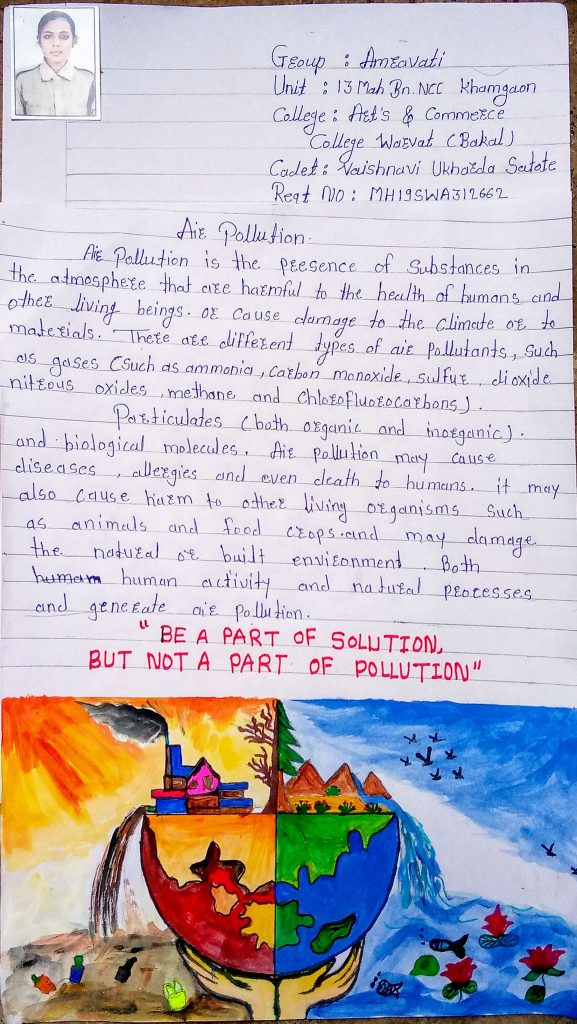 Group : Amravati
Unit : 13 Mah Bn. NCC Khamgaon
College : Art's & Commerce
College Warvat (Bakal)
Cadet : Vaishnavi Ukharda Satote
Regt NO : MH19SWA312662
Air Pollution.
Air Pollution is the presence of Substances in
the atmosphere that are harmful to the health of humans and
other living beings. or cause damage to the climate or to
materials. There are different types of air pollutants, such
as gases (such as ammonia, carbon monoxide, sulfur, dioxide
nitrous oxides, methane and chlorofluorocarbons).
Particulates (both organic and inorganic).
and biological molecules. Air pollution may cause
diseases, allergies and even death to humans. it may
also cause harm to other living organisms such
as animals and food crops. and may damage
the natural or built environment. Both
human human activity and natural processes
and generate air pollution.
"BE A PART OF SOLUTION,
BUT NOT A PART OF POLLUTION"